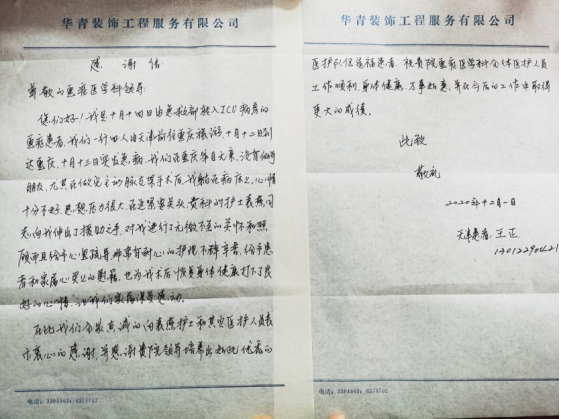 华青装饰工程服务有限公司
感谢信
尊敬的重症医学科领导:
您们好!我是十月十四日由急救部转入ICU病房的
重症患者,我们一行四人由天津前往重庆旅游,十月十二日到
达重庆,十月十三日突发急病,我们在重庆举目无亲,没有
朋友,尤其在做完主动脉夹层手术后,我躺在病床上,心情
十分不好,思想压力很大,在这紧要关头,贵科的护士袁燕同
志,向我伸出了援助之手,对我进行了无微不至的关怀和照
顾,而且给予心里疏导,非常有耐心的护理,不辞辛苦,给予患
者和家属心灵上的慰藉,也为我术后恢复身体健康打下了良
好的心情,让我们家属深受感动。
在此,我们全家真诚的向袁燕护士和其实医护人员表
示衷心的感谢,并感谢贵院领导培养出如此优秀的
电话:
华青装饰工程服务有限公司
医护队伍造福患者,祝贵院重症医学科全体医护人员
工作顺利,身体健康,万事如意,并在今后的工作中取得
更大的成绩。
此致
敬礼
2020年十二月一日
天津患者:王正
电话: